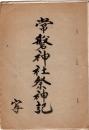 常磐神社祭神記